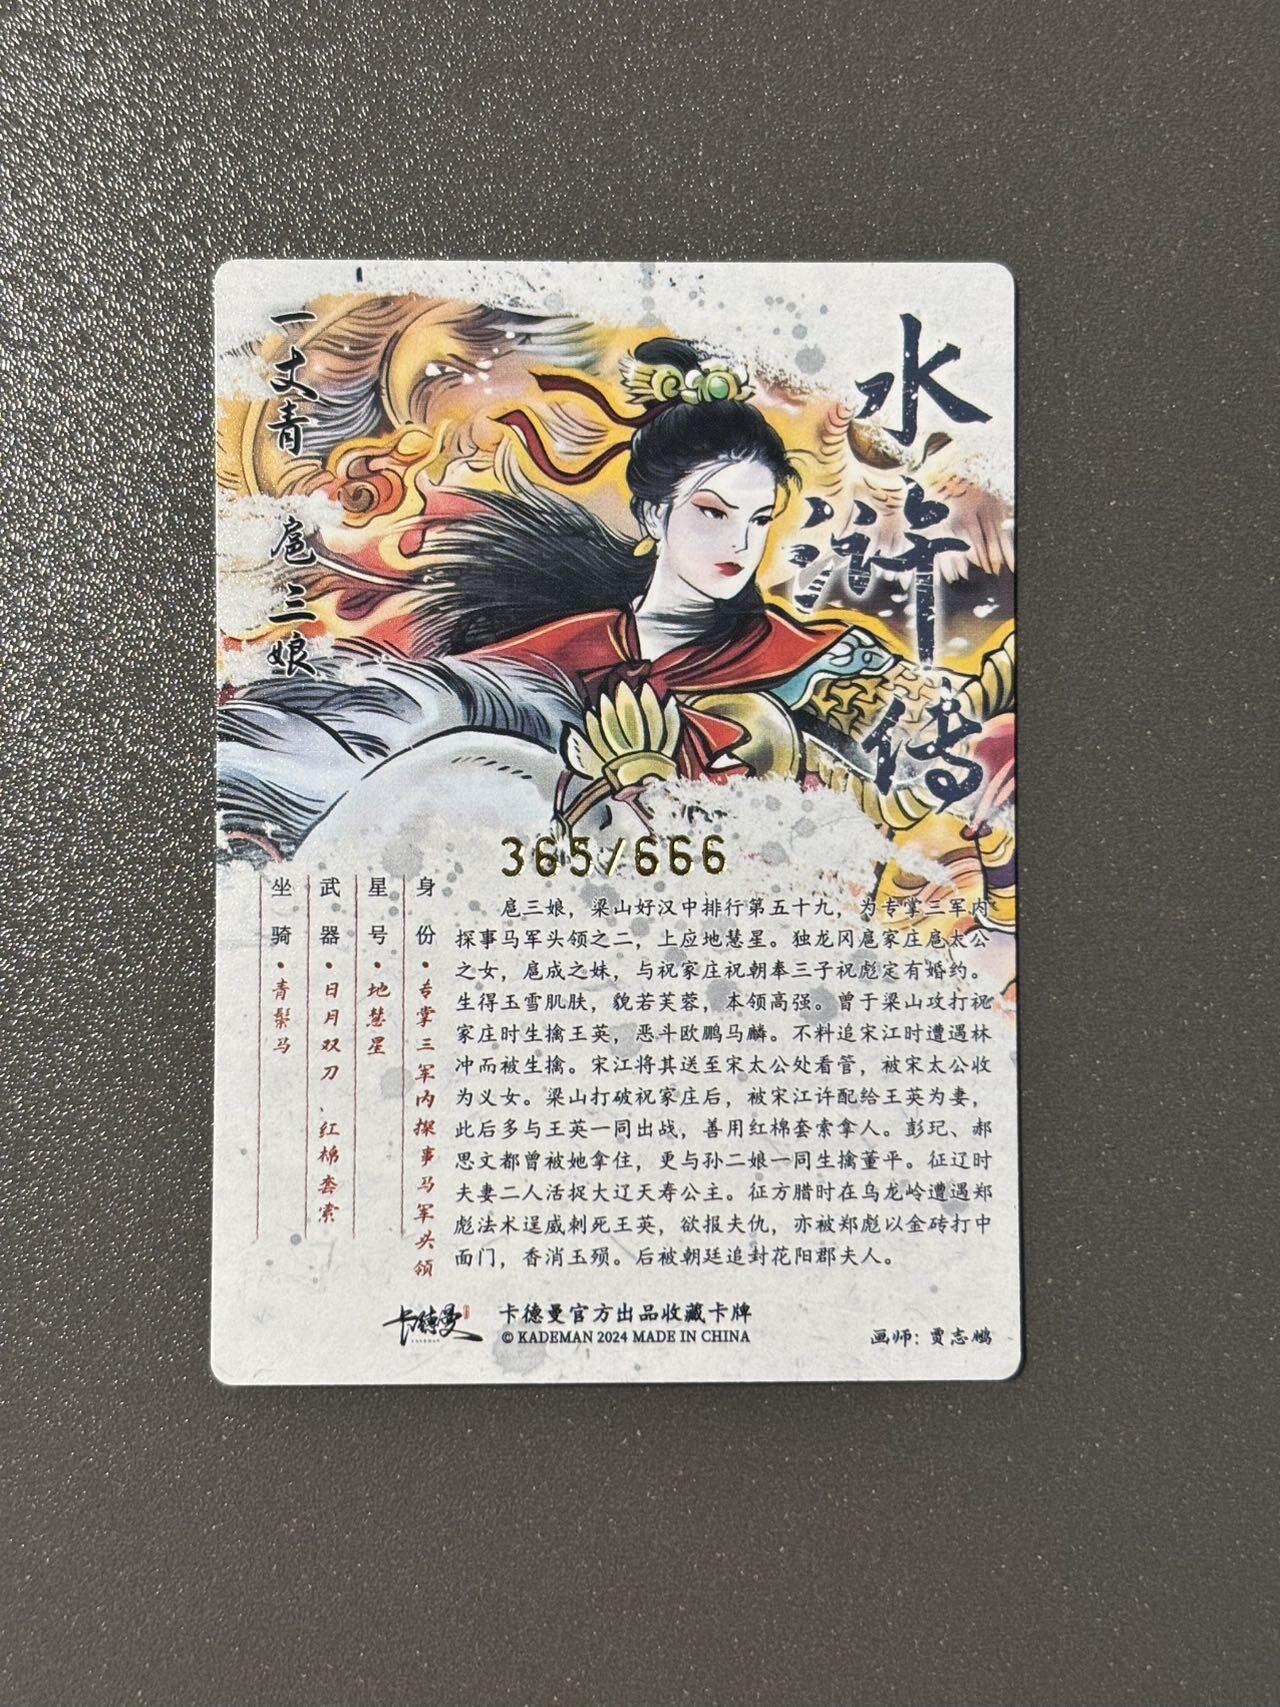 水浒传
一丈青 扈三娘
365/666
身份·专掌三军内探事马军头领
星号·地慧星
武器·日月双刀、红棉套索
坐骑·青鬃马
扈三娘，梁山好汉中排行第五十九，为专掌三军内
探事马军头领之二，上应地慧星。独龙冈扈家庄扈太公
之女，扈成之妹，与祝家庄祝朝奉三子祝彪定有婚约。
生得玉雪肌肤，貌若芙蓉，本领高强。曾于梁山攻打祝
家庄时生擒王英，恶斗欧鹏马麟。不料追宋江时遭遇林
冲而被生擒。宋江将其送至宋太公处看管，被宋太公收
为义女。梁山打破祝家庄后，被宋江许配给王英为妻，
此后多与王英一同出战，善用红棉套索拿人。彭玘、郝
思文都曾被她拿住，更与孙二娘一同生擒董平。征辽时
夫妻二人活捉大辽天寿公主。征方腊时在乌龙岭遭遇郑
彪法术逞威刺死王英，欲报夫仇，亦被郑彪以金砖打中
面门，香消玉殒。后被朝廷追封花阳郡夫人。
卡德曼
卡德曼官方出品收藏卡牌
© KADEMAN 2024 MADE IN CHINA
画师：贾志鹏